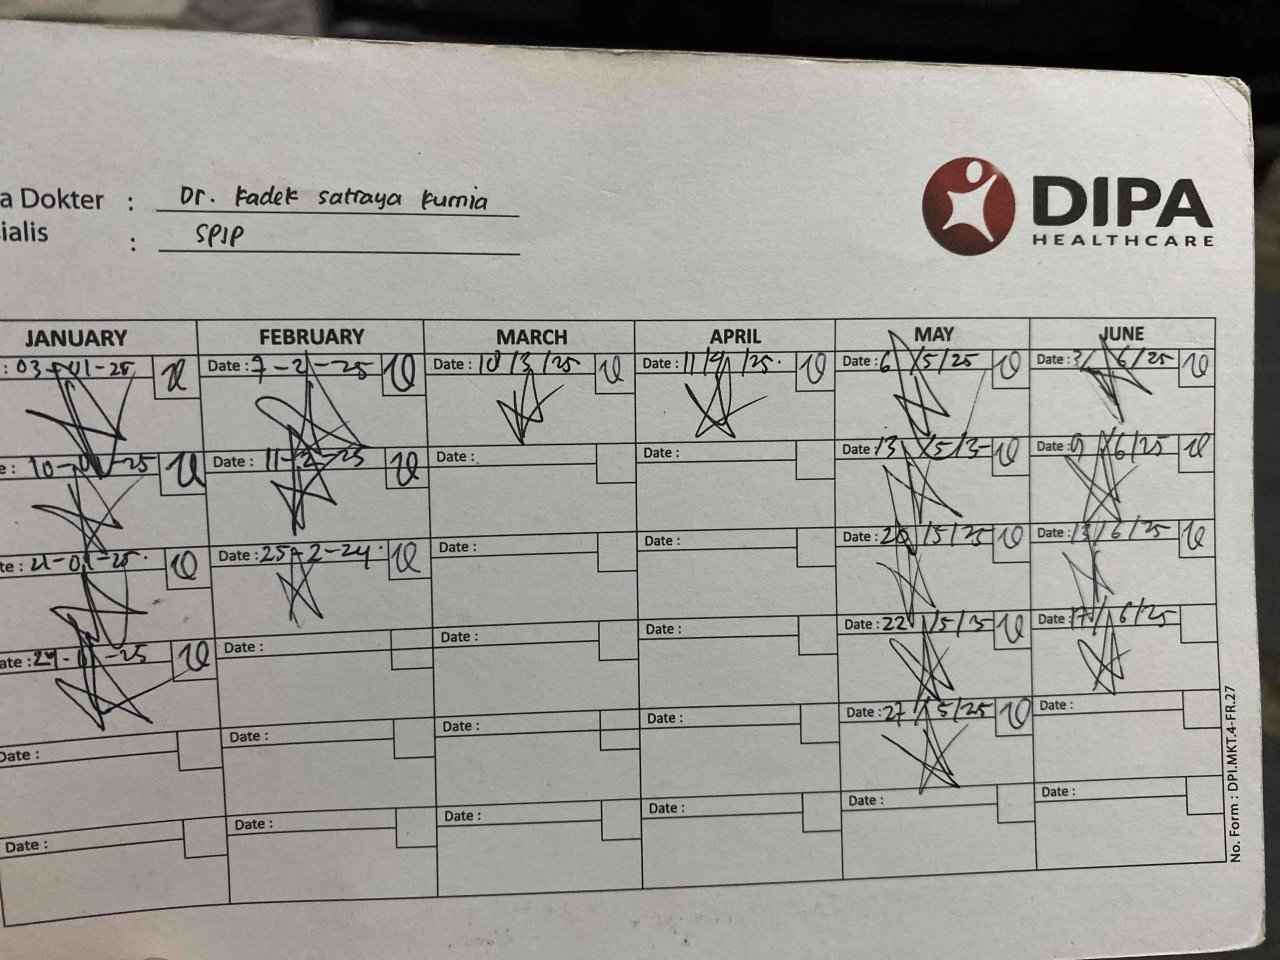 a Dokter : Dr. Kadek satraya kurnia
ialis : SPJP
DIPA
HEALTHCARE
JANUARY FEBRUARY MARCH APRIL MAY JUNE
: 03-01-25 Date : 7-2-25 Date : 10/3/25 Date : 11/4/25. Date : 6/5/25 Date : 3/6/25
e : 10-01-25 Date : 11-2-25 Date : Date : Date : 13/5/25 Date : 9/6/25
te : 21-01-25. Date : 25-2-24. Date : Date : Date : 20/5/25 Date : 13/6/25
ate : 24-01-25 Date : Date : Date : Date : 22/5/25 Date : 17/6/25
Date : Date : Date : Date : Date : 27/5/25 Date :
Date : Date : Date : Date : Date : Date :
No. Form : DPI.MKT.4-FR.27